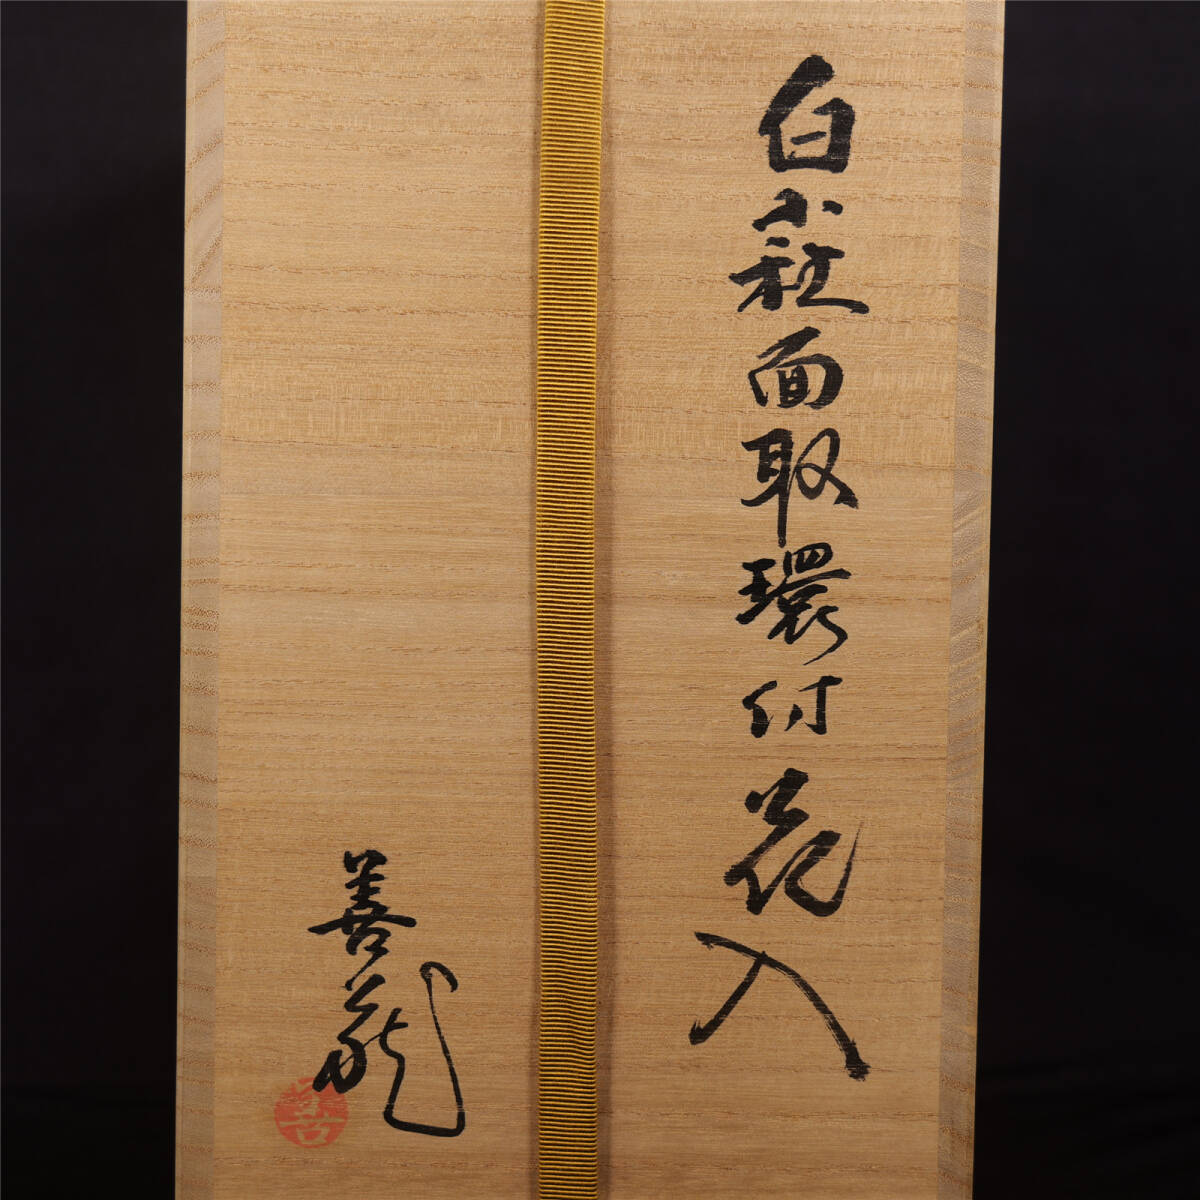 白萩面取環付花入
善蔵